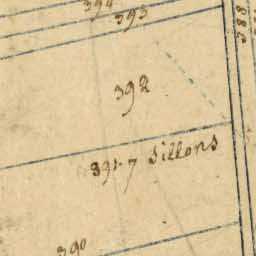 394
393
388
392
391. 7 Sillons
390